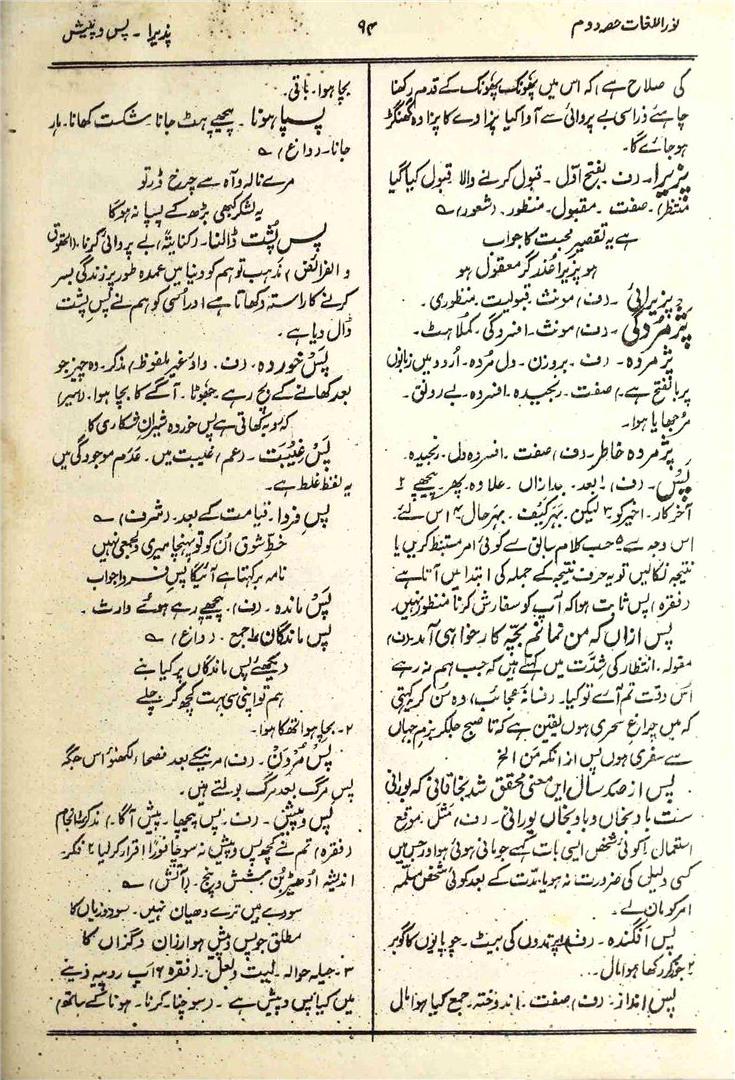 نور اللغات حصہ دوم
۹۴
پذیرا - پس و پیش
کی صلاح ہے) کہ اس میں پھونک پھونک کے قدم رکھنا
چاہئے ذرا سی بے پروائی سے آوا کیا پزاوے کا پزاوہ کھنگڑ
ہو جائے گا۔
پزیرا۔ (ف۔ بفتح اول۔ قبول کرنے والا۔ قبول کیا گیا
منتظر) صفت۔ مقبول۔ منظور۔ (شعور) ؎
ہے یہ تقصیر محبت کا جواب
ہو پزیرا عذر گر معقول ہو
پزیرائی۔ (ف) مونث۔ قبولیت۔ منظوری۔
پژمردگی۔ (ف) مونث۔ افسردگی۔ کملاہٹ۔
پژمردہ۔ (ف۔ بروزن۔ دل مردہ۔ اردو میں زبانوں
پر بالفتح ہے) صفت۔ رنجیدہ۔ افسردہ۔ بے رونق۔
مرجھایا ہوا۔
پژمردہ خاطر۔ (ف) صفت۔ افسردہ دل۔ رنجیدہ۔
پس۔ (ف) ۱ بعد۔ بعد ازاں۔ علاوہ۔ پھر۔ پیچھے ۲
آخرکار۔ اخیر کو ۳ لیکن۔ بہر کیف۔ بہر حال ۴ اس لئے۔
اس وجہ سے ۵ جب کلام سابق سے کوئی امر مستنبط کریں یا
نتیجہ نکالیں تو یہ حرف نتیجہ کے جملہ کی ابتدا میں آتا ہے
(فقرہ) پس ثابت ہوا کہ آپ کو سفارش کرنا منظور نہیں۔
پس ازاں کہ من نمانم بچہ کار خواہی آمد۔ (ف)
مقولہ۔ انتظار کی شدت میں کہتے ہیں کہ جب ہم نہ رہے
اس وقت تم آئے تو کیا۔ (فسانہ عجائب) وہ سن کر یہ کہتی
کہ میں چراغ سحری ہوں یقین ہے کہ تا صبح جلکر بزم جہاں
سے سفری ہوں پس از انکہ من الخ
پس از صد سال ایں معنی محقق شد بخاقانی کہ بورانی
ست بادنجان و بادنجاں بورانی۔ (ف) مثل۔ موقع
استعمال) کوئی شخص ایسی بات کہے جو جانی ہوئی ہو اور جس میں
کسی دلیل کی ضرورت نہ ہو یا مدت کے بعد کوئی شخص مسلمہ
امر کو مان لے۔
پس افگندہ۔ (ف) پرندوں کی بیٹ۔ چوپایوں کا گوبر
۲ جوڑ کر رکھا ہوا مال۔
پس انداز۔ (ف) صفت۔ اندوختہ۔ جمع کیا ہوا مال
بچا ہوا۔ باقی۔
پسپا ہونا۔ پیچھے ہٹ جانا۔ شکست کھانا۔ ہار
جانا۔ (داغ) ؎
مرے نالہ و آہ سے چرخ ڈر تو
یہ لشکر کبھی بڑھ کے پسپا نہ ہوگا
پس پشت ڈالنا۔ (کنایتہً) بے پروائی کرنا۔ (الحقوق
و الفرائض) مذہب تو ہم کو دنیا میں عمدہ طور پر زندگی بسر
کرنے کا راستہ دکھاتا ہے اور اسی کو ہم نے پس پشت
ڈال دیا ہے۔
پس خوردہ۔ (ف۔ واؤ غیر ملفوظ) مذکر۔ وہ چیز جو
بعد کھانے کے بچ رہے۔ جھوٹا۔ آگے کا بچا ہوا۔ (اسیر)
کہ لوبہ کھاتی ہے پس خوردہ شیران شکاری کا
پس غیبت۔ (عم) غیبت میں۔ عدم موجودگی میں
یہ لفظ غلط ہے۔
پس فردا۔ قیامت کے بعد۔ (شرف) ؎
خط شوق ان کو تو پہنچا میری دلجمعی نہیں
نامہ بر کہتا ہے آئیگا پس فردا جواب
پس ماندہ۔ (ف) ۱۔ پیچھے رہے ہوئے وارث۔
پس ماندگان جمع۔ (داغ) ؎
دیکھئے پس ماندگاں پر کیا بنے
ہم تو اپنی سی بہت کچھ کر چلے
۲۔ بچا ہوا تھکا ہوا۔
پس مردن۔ (ف) مرنیکے بعد۔ فصحاء لکھنؤ اس جگہ
پس مرگ بعد مرگ بولتے ہیں۔
پس و پیش۔ (ف۔ پس پیچھا۔ پیش آگا) مذکر ۱ انجام
(فقرہ) تم نے کچھ پس و پیش نہ سوچا فوراً اقرار کر لیا ۲ فکر۔
اندیشہ۔ ادھیڑبن۔ شش و پنج۔ (آتش) ؎
سودے میں ترے دھیان نہیں۔ سود و زیاں کا
مطلق جو پس و پیش ہو ارزاں و گراں کا
۳۔ حیلہ حوالہ۔ لیت و لعل۔ (فقرہ) اب روپیہ دینے
میں کیا پس و پیش ہے۔ (سوچنا۔ کرنا۔ ہونا کے ساتھ)